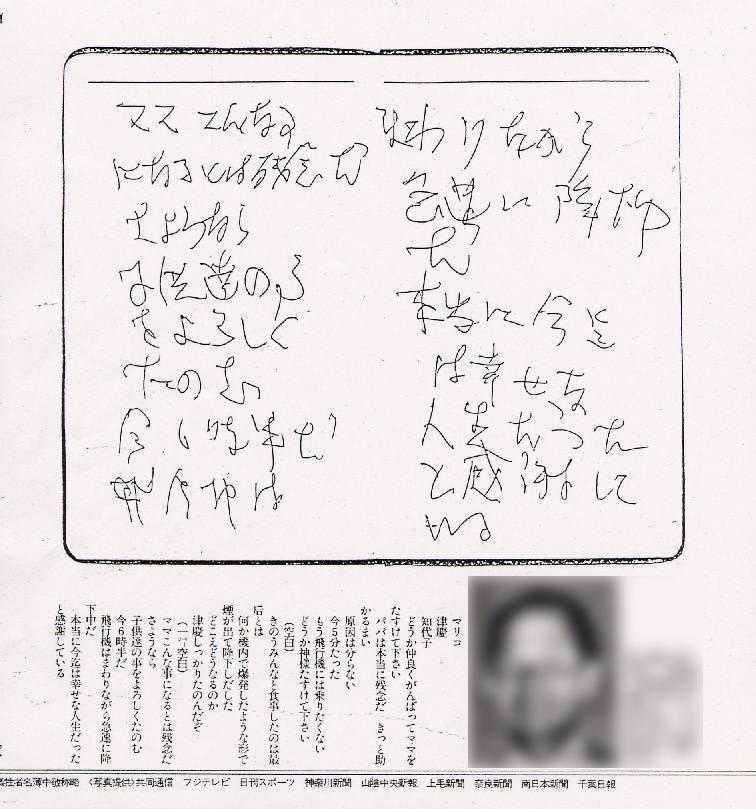 ママ こんな事
になるとは残念だ
さようなら
子供達の事
をよろしく
たのむ
今6時半だ
飛行機は
まわりながら
急速に降下中
だ
本当に今迄
は幸せな
人生だった
と感謝して
いる
マリコ
津慶
知代子
どうか仲良くがんばってママを
たすけて下さい
パパは本当に残念だ きっと助
かるまい
原因は分らない
今5分たった
もう飛行機には乗りたくない
どうか神様たすけて下さい
(空白)
きのうみんなと食事したのは最
后とは
何か機内で爆発したような形で
煙が出て降下しだした
どこえどうなるのか
津慶しっかりたのんだぞ
(空白)
ママこんな事になるとは残念だ
さようなら
子供達の事をよろしくたのむ
今6時半だ
飛行機はまわりながら急速に降
下中だ
本当に今迄は幸せな人生だった
と感謝している
牲者名簿中敬称略 〈写真提供〉共同通信 フジテレビ 日刊スポーツ 神奈川新聞 山陰中央新報 上毛新聞 奈良新聞 南日本新聞 千葉日報